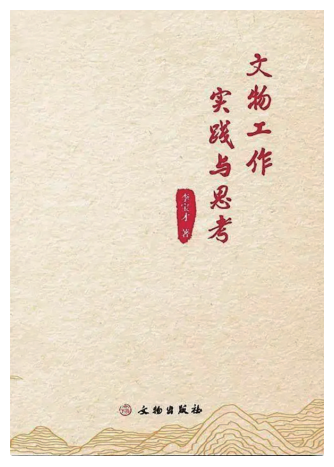 文物工作
实践与思考
李宝才 著
文物出版社